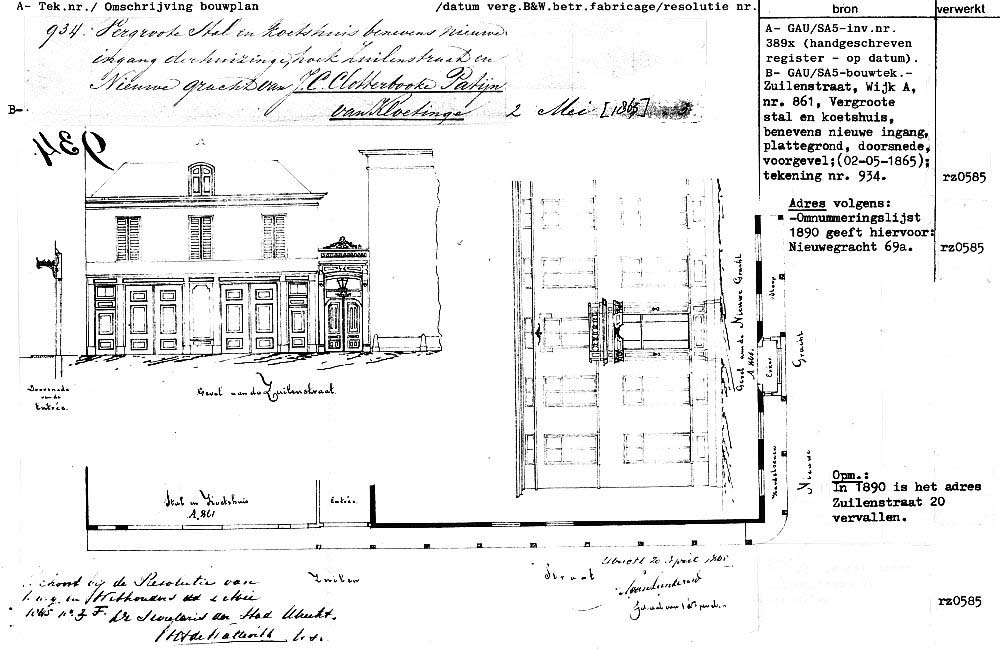 A- Tek.nr./ Omschrijving bouwplan /datum verg.B&W.betr.fabricage/resolutie nr.
bron
verwerkt
934. Vergroote Stal en Koetshuis benevens nieuwe
ingang der huizinge, hoek Zuilenstraat en
Nieuwe gracht van J.C. Clotterbooke Patijn
van Kloetinge 2 Mei [1865]
B-
A- GAU/SA5-inv.nr.
389x (handgeschreven
register - op datum).
B- GAU/SA5-bouwtek.-
Zuilenstraat, Wijk A,
nr. 861, Vergroote
stal en koetshuis,
benevens nieuwe ingang,
plattegrond, doorsnede,
voorgevel;(02-05-1865);
tekening nr. 934.
rz0585
Adres volgens:
-Omnummeringslijst
1890 geeft hiervoor:
Nieuwegracht 69a.
rz0585
934.
Doorsnede
van de
Entrée.
Gevel aan de Zuilenstraat.
Gevel aan de Nieuwe Gracht
A 860.
Stoep
Gracht
Nieuwe
Stal en Koetshuis
A. 861
Entrée
Opm.:
In 1890 is het adres
Zuilenstraat 20
vervallen.
Zuilen Straat
Utrecht 20 April 1865
Behoort bij de Resolutie van
en Wethouders
De Secretaris der Stad Utrecht.
rz0585